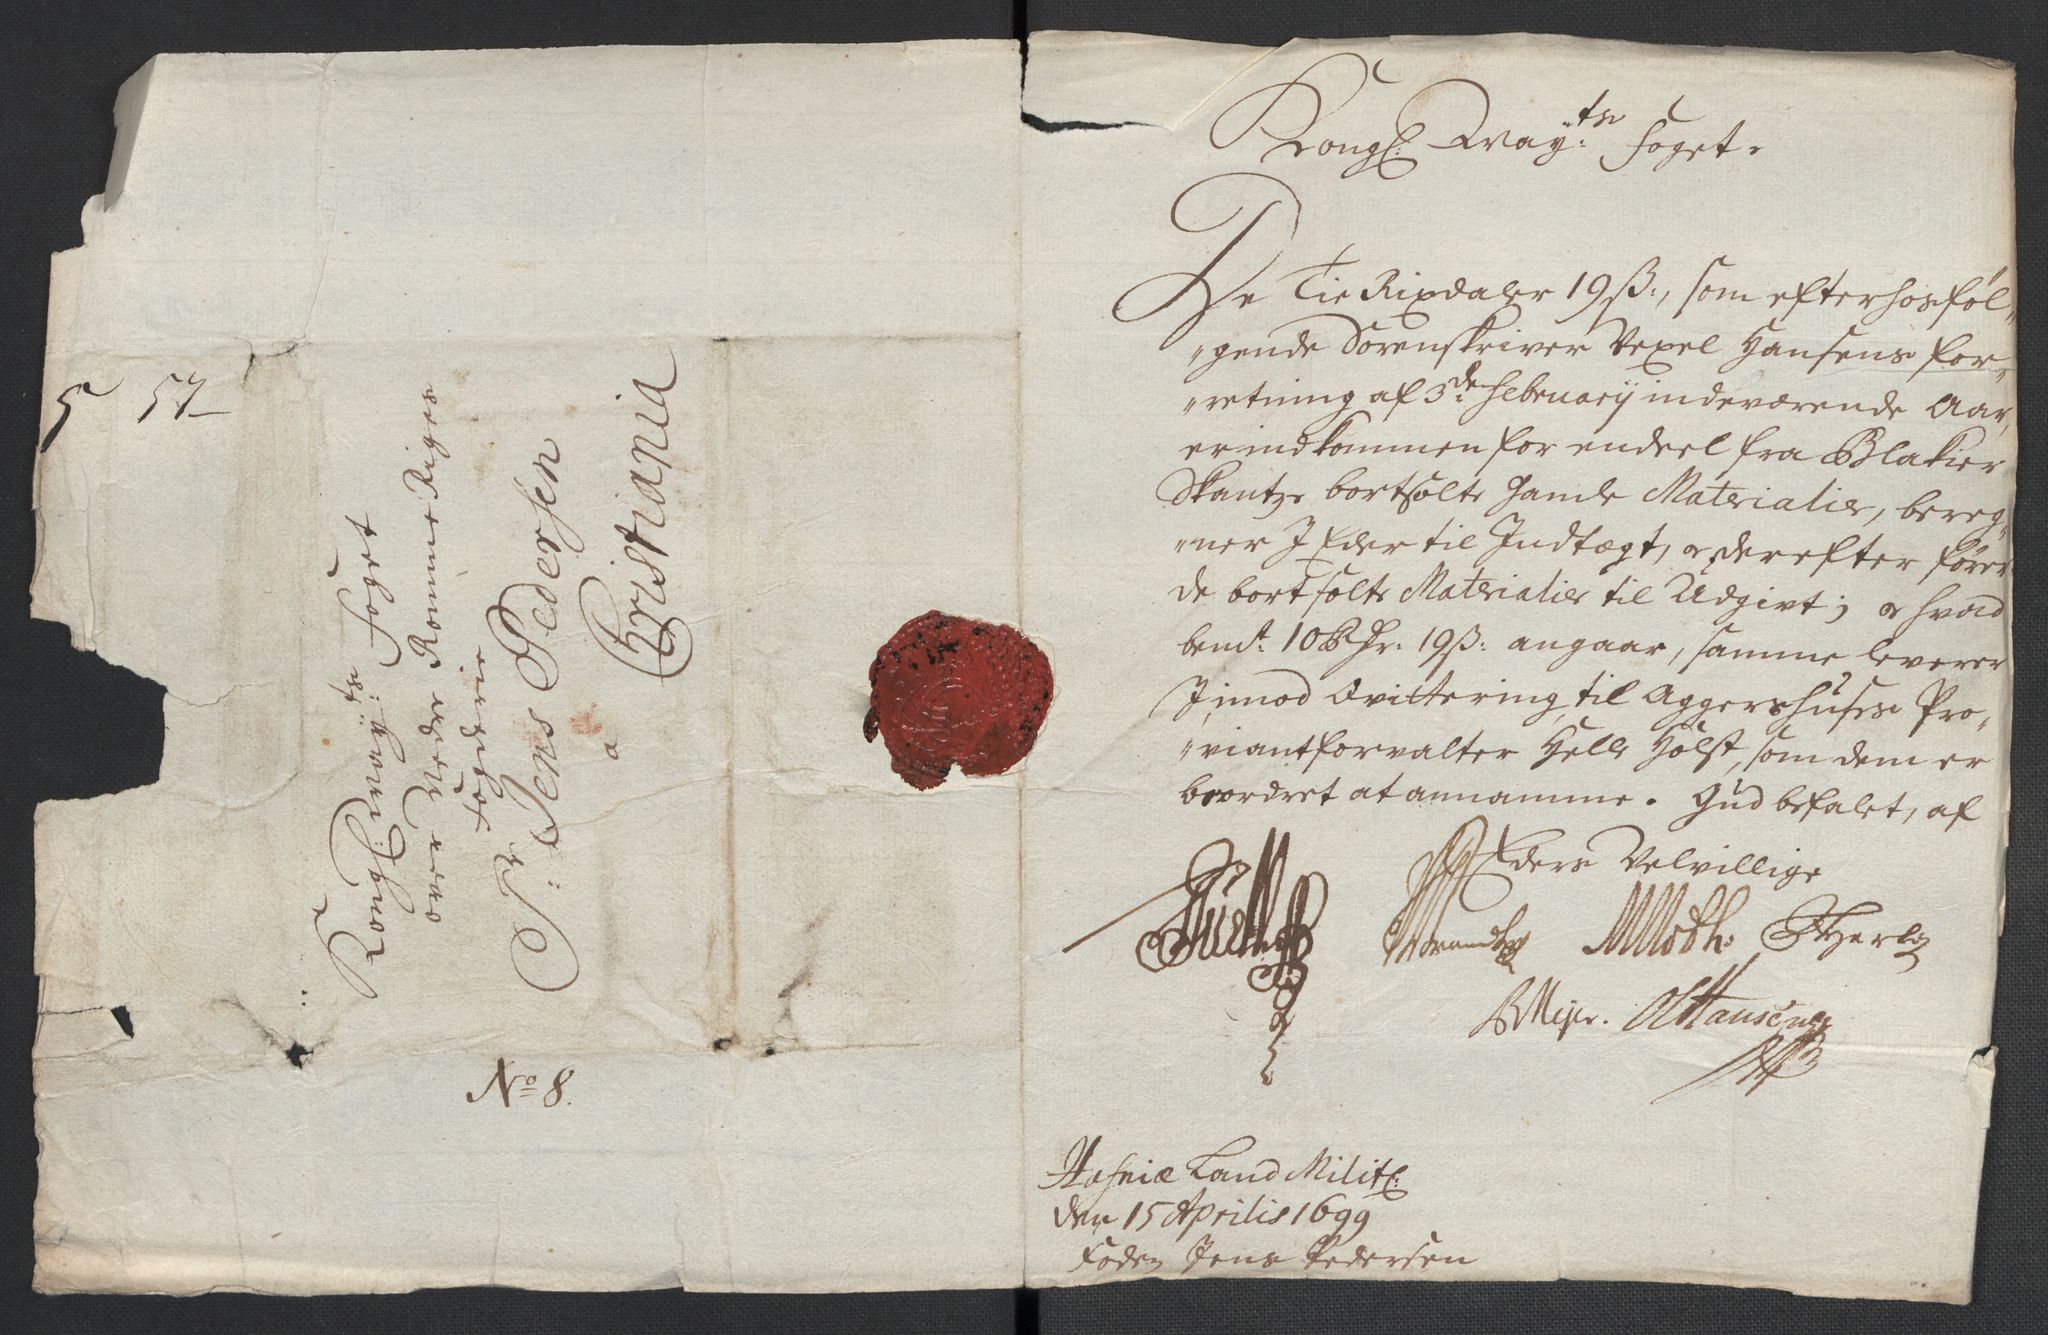 5 57
Kongl: Mayts: Foget
over Nedre Rommerriges
Fogderie
Sr: Jens Pedersen
a
Christiania
No 8.
Kongl: Mayts: Foget.
De Tie Rixdaler 19 ß:, som efter hosføl-
gende Sorenskriver Vexel Hansens for-
retning af 3de: Februarij indeværende Aar,
er indkommen for endeel fra Blakier
Skantze bortsolte gamle Materialier, bereg-
ner I Eder til Indtægt, og derefter fører
de bortsolte Materialier til Udgivt; og hvad
bemt: 10 Rdr. 19 ß: angaar, samme leverer
I, imod Qvittering, til Aggershuses Pro-
viantforvalter Helle Holst, som dem er
beordret at annamme. Gud befalet, af
Eders Velvillige
MMoth. Hertz
BMejer. OHansen
Hafniæ Land Militl:
den 15 Aprilis 1699
Fogden Jens Pedersen